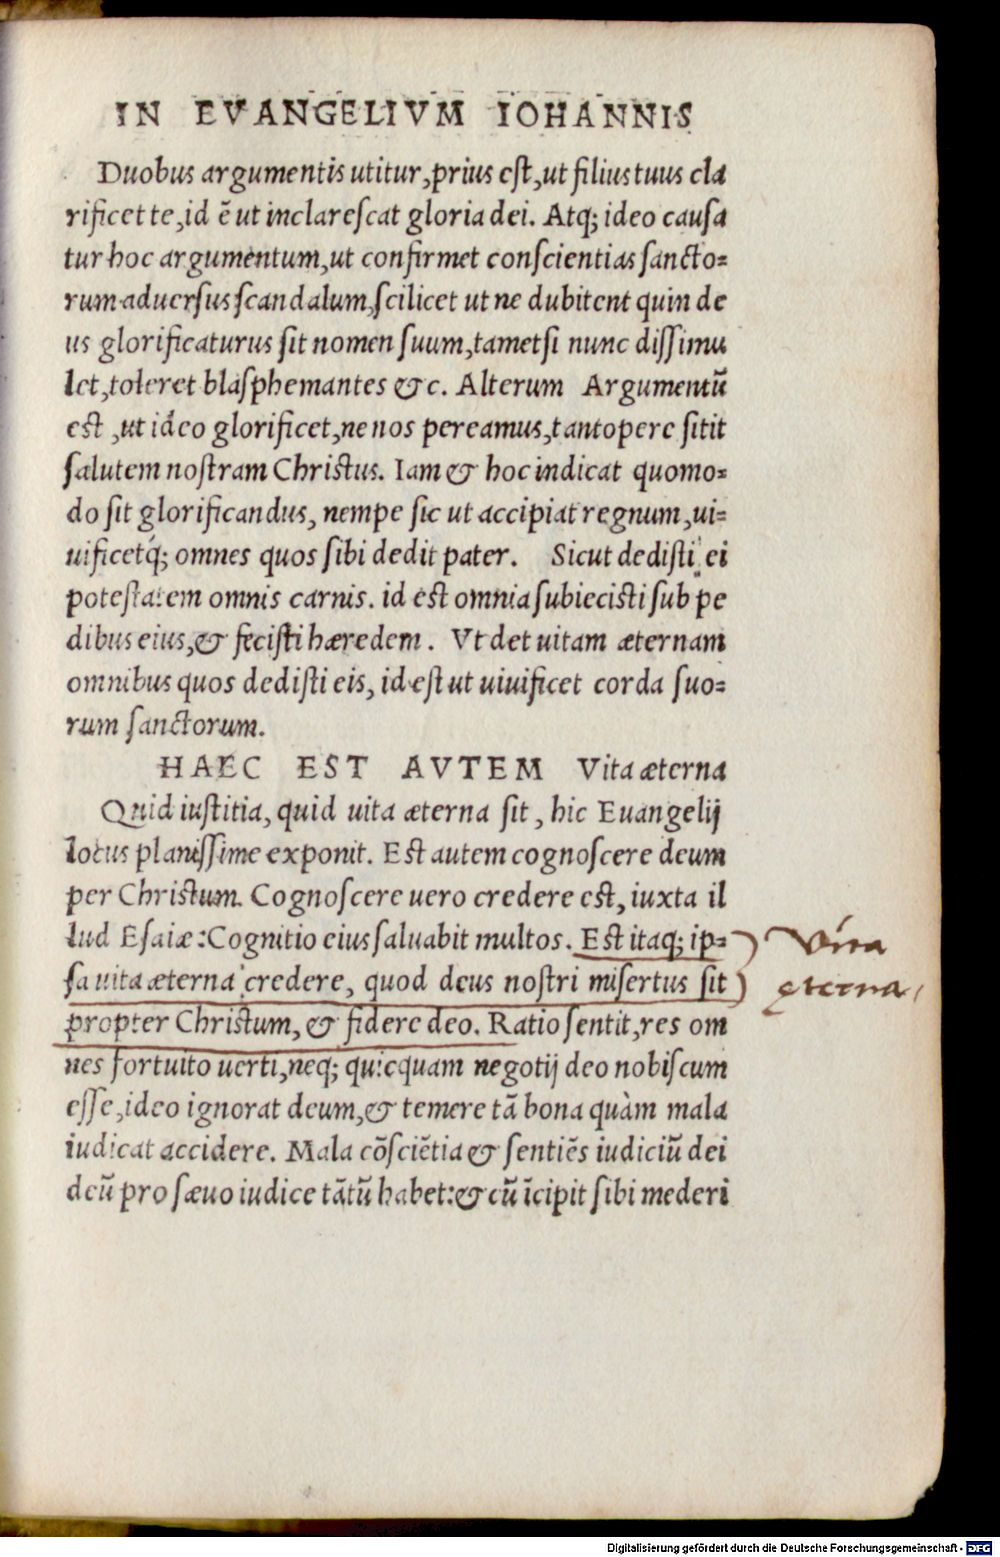 IN EVANGELIVM IOHANNIS
Duobus argumentis utitur, prius est, ut filius tuus cla
rificet te, id ē ut inclarescat gloria dei. Atq; ideo causa
tur hoc argumentum, ut confirmet conscientias sancto=
rum aduersus scandalum, scilicet ut ne dubitent quin de
us glorificaturus sit nomen suum, tametsi nunc dissimu
let, toleret blasphemantes &c. Alterum Argumentū
est, ut ideo glorificet, ne nos pereamus, tantopere sitit
salutem nostram Christus. Iam & hoc indicat quomo=
do sit glorificandus, nempe sic ut accipiat regnum, ui=
uificetq́; omnes quos sibi dedit pater. Sicut dedisti ei
potestatem omnis carnis. id est omnia subiecisti sub pe
dibus eius, & fecisti hæredem. Vt det uitam æternam
omnibus quos dedisti eis, id est ut uiuificet corda suo=
rum sanctorum.
HAEC EST AVTEM Vita æterna
Quid iustitia, quid uita æterna sit, hic Euangelij
locus planissime exponit. Est autem cognoscere deum
per Christum. Cognoscere uero credere est, iuxta il
lud Esaiæ: Cognitio eius saluabit multos. Est itaq; ip=
sa uita æterna credere, quod deus nostri misertus sit
propter Christum, & fidere deo. Ratio sentit, res om
nes fortuito uerti, neq; quicquam negotij deo nobiscum
esse, ideo ignorat deum, & temere tā bona quàm mala
iudicat accidere. Mala cōsciētia & sentiēs iudiciū dei
deū pro sæuo iudice tātū habet: & cū īcipit sibi mederi
Vita
ęterna
Digitalisierung gefördert durch die Deutsche Forschungsgemeinschaft - DFG